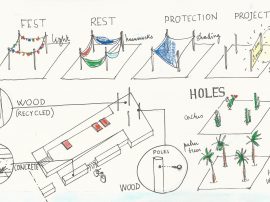 FEST
light
REST
hammocks
PROTECTION
shading
PROJECT
WOOD
(RECYCLED)
HOLES
cactus
palm
trees
(CONCRETE)
POLES
WOOD